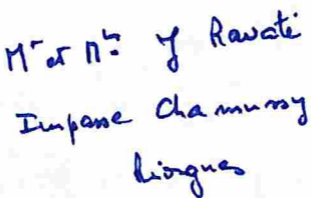 Mr et Mme J Ravaté
Impasse Chamussy
Riorgues